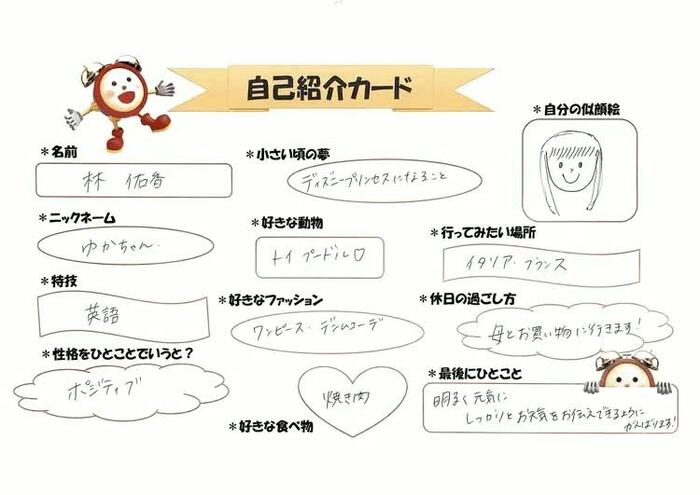 自己紹介カード
＊名前
林 佑香
＊小さい頃の夢
ディズニープリンセスになること
＊自分の似顔絵
＊ニックネーム
ゆかちゃん.
＊好きな動物
トイプードル♡
＊行ってみたい場所
イタリア・フランス
＊特技
英語
＊好きなファッション
ワンピース・デニムコーデ
＊休日の過ごし方
母とお買い物に行きます!
＊性格をひとことでいうと？
ポジティブ
焼き肉
＊好きな食べ物
＊最後にひとこと
明るく元気に
しっかりとお天気をお伝えできるように
がんばります!